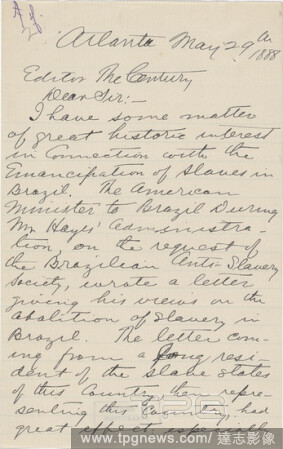 Atlanta May 29th
1888
Editor The Century
Dear Sir:—
I have some matter
of great historic interest
in Connection with the
Emancipation of Slaves in
Brazil. The American
Minister to Brazil During
Mr Hayes' Administra-
tion, on the request of
the Brazilian Anti-Slavery
Society, wrote a letter
giving his views on the
Abolition of Slavery in
Brazil. The letter com-
ing from a long resi-
dent of the Slave States
of this Country, then repre-
senting this Country, had
great effect especially
www.tpgnews.com/達志影像